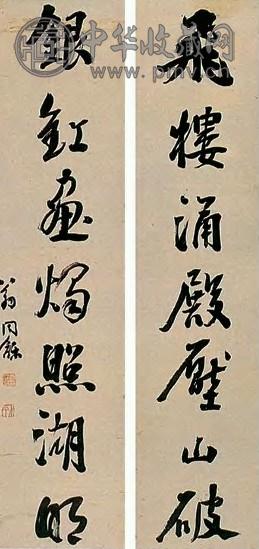 中华收藏网
www.pmv.cn
飛樓涌殿壓山破
銀釭畫燭照湖明
翁同龢